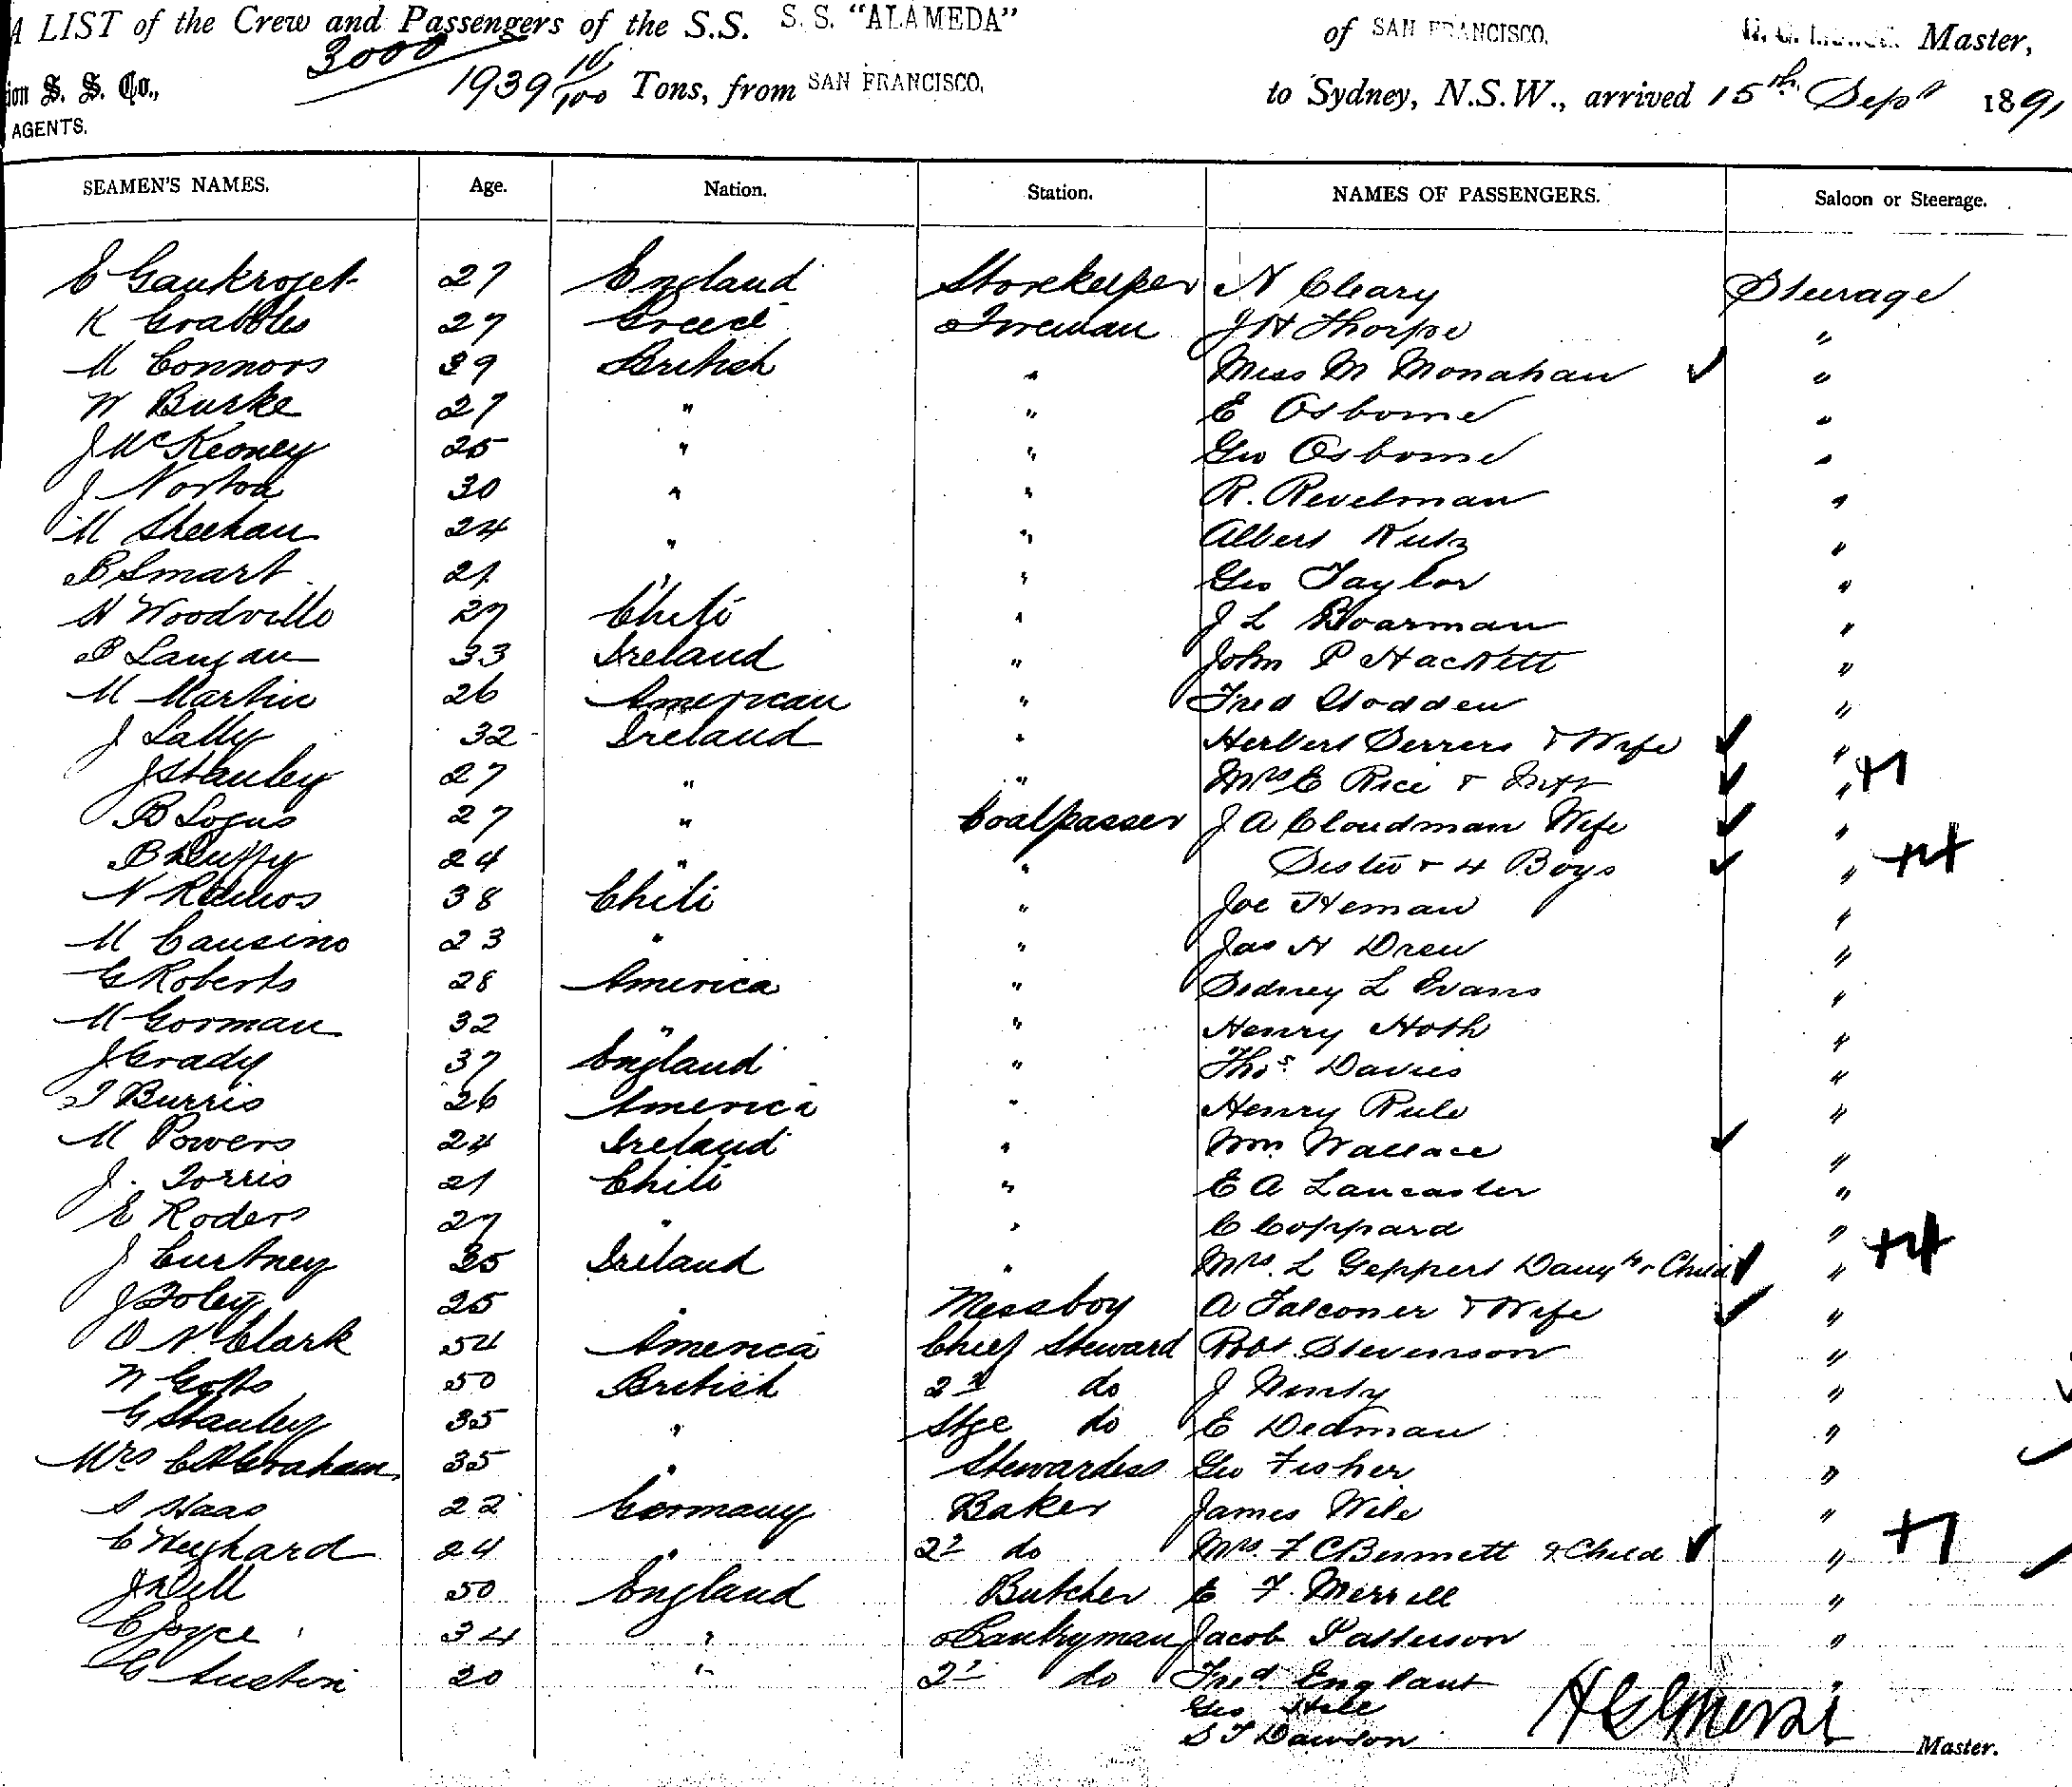 A LIST of the Crew and Passengers of the S.S. S. S. "ALAMEDA" of SAN FRANCISCO, Master,
3000
ion S. S. Co., 1939 16/100 Tons, from SAN FRANCISCO, to Sydney, N.S.W., arrived 15th Sept 1891
AGENTS.
SEAMEN'S NAMES. Age. Nation. Station. NAMES OF PASSENGERS. Saloon or Steerage.
E Gaukroget 27 England Storekeeper N Cleary Steerage
K Grabbles 27 Greece Fireman J H Thorpe "
M Connors 39 British " Miss M Monahan ✓ "
W Burke 27 " " E Osborne "
J McKeoney 25 " " Geo Osborne "
J Norton 30 " " R. Revelman "
M Sheehan 24 " " Albert Kutz "
B Smart 21 " " Geo Taylor "
H Woodville 27 Chili " J L Boarman "
P Langan 33 Ireland " John P Hackett "
M Martin 26 American " Fred Stodden "
J Lally 32 Ireland " Herbert Serrers & Wife ✓ "
J Stanley 27 " " Mrs E Rice & Inft ✓ " +1
B Logus 27 " Coalpasser J A Cloudman Wife ✓ "
B Duffy 24 " " Sister & 4 Boys ✓ " +4
N Ramos 38 Chili " Joe Heman "
M Causino 23 " " Jas H Drew "
G Roberts 28 America " Sidney L Evans "
M Gorman 32 " " Henry Hoth "
J Grady 37 England " Thos Davies "
J Burris 26 America " Henry Rule "
M Powers 24 Ireland " Wm Wallace ✓ "
J. Torris 21 Chili " E A Lancaster "
E Roders 27 " " C Coppard "
J Curtney 35 Ireland " Mrs. L Geppert Daugtr & Child ✓ " +4
J Foley 25 " Messboy A Falconer & Wife ✓ "
O N. Clark 54 America Chief Steward Robt. Stevenson "
W Gotts 50 British 2d do J "
G Stanley 35 " Stge do E Dedman "
Mrs C A Graham 35 " Stewardess Geo Fisher "
S Haas 22 Germany Baker James Wile "
C Weyhard 24 " 2d do Mrs. F C Bennett & Child ✓ " +1
J Dell 50 England Butcher E F. Merrell "
C Joyce 34 " Pantryman Jacob Patterson "
G Austin 20 " 2d do Fred Englant "
Geo Hill
S T Dawson Master.